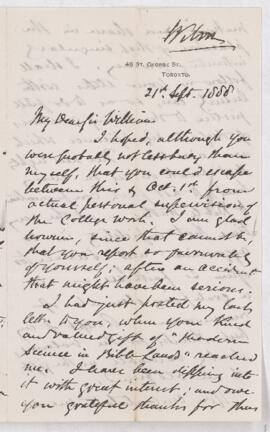 Wilson
46 St. George St.
Toronto.
21st Sept. 1888
My Dear Sir William
I hoped, although you
were probably not less busy than
myself, that you could escape
between this & Oct. 1st from
actual personal supervision of
the College work. I am glad
however, since that cannot be,
that you report so favourably
of yourself, after an accident
that might have been serious.
I had just posted my last
letr. to you, when your kind
and valued gift of "Modern
Science in Bible Lands" reached
me. I have been dipping into
it with great interest; and owe
you grateful thanks for thus